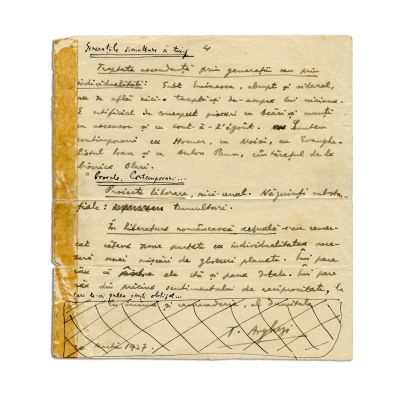 Generațiile simultane în timp 4
Treapta ascendentă prin generații sau prin
individualități: Subt Eminescu, abrupt și sideral,
nu se află nici-o treaptă și de-asupra lui niciuna.
E artificial de conceput piscuri cu scări și munți
cu ascensor și cu tont-à-l'égoût. Suntem
contimporani cu Homer, cu Moisi, cu Evanghe-
listul Ioan și cu Anton Pann, cântărețul de la
biserica Olari.
Proiecte literare, nici-unul. Năzuinți substan-
țiale: tumulturi.
În literatura românească actuală s'au remar-
cat câteva zone punctate cu individualitatea
unei mișcări de globuri planete. Îmi pare
rău că ele stă și pana Dtale. Îmi pare
rău din pricina sentimentului de reciprocitate, la
care te-a putea simți obligat...
Cu inimă și camaraderie, al dumitale
T. Arghezi
1927.